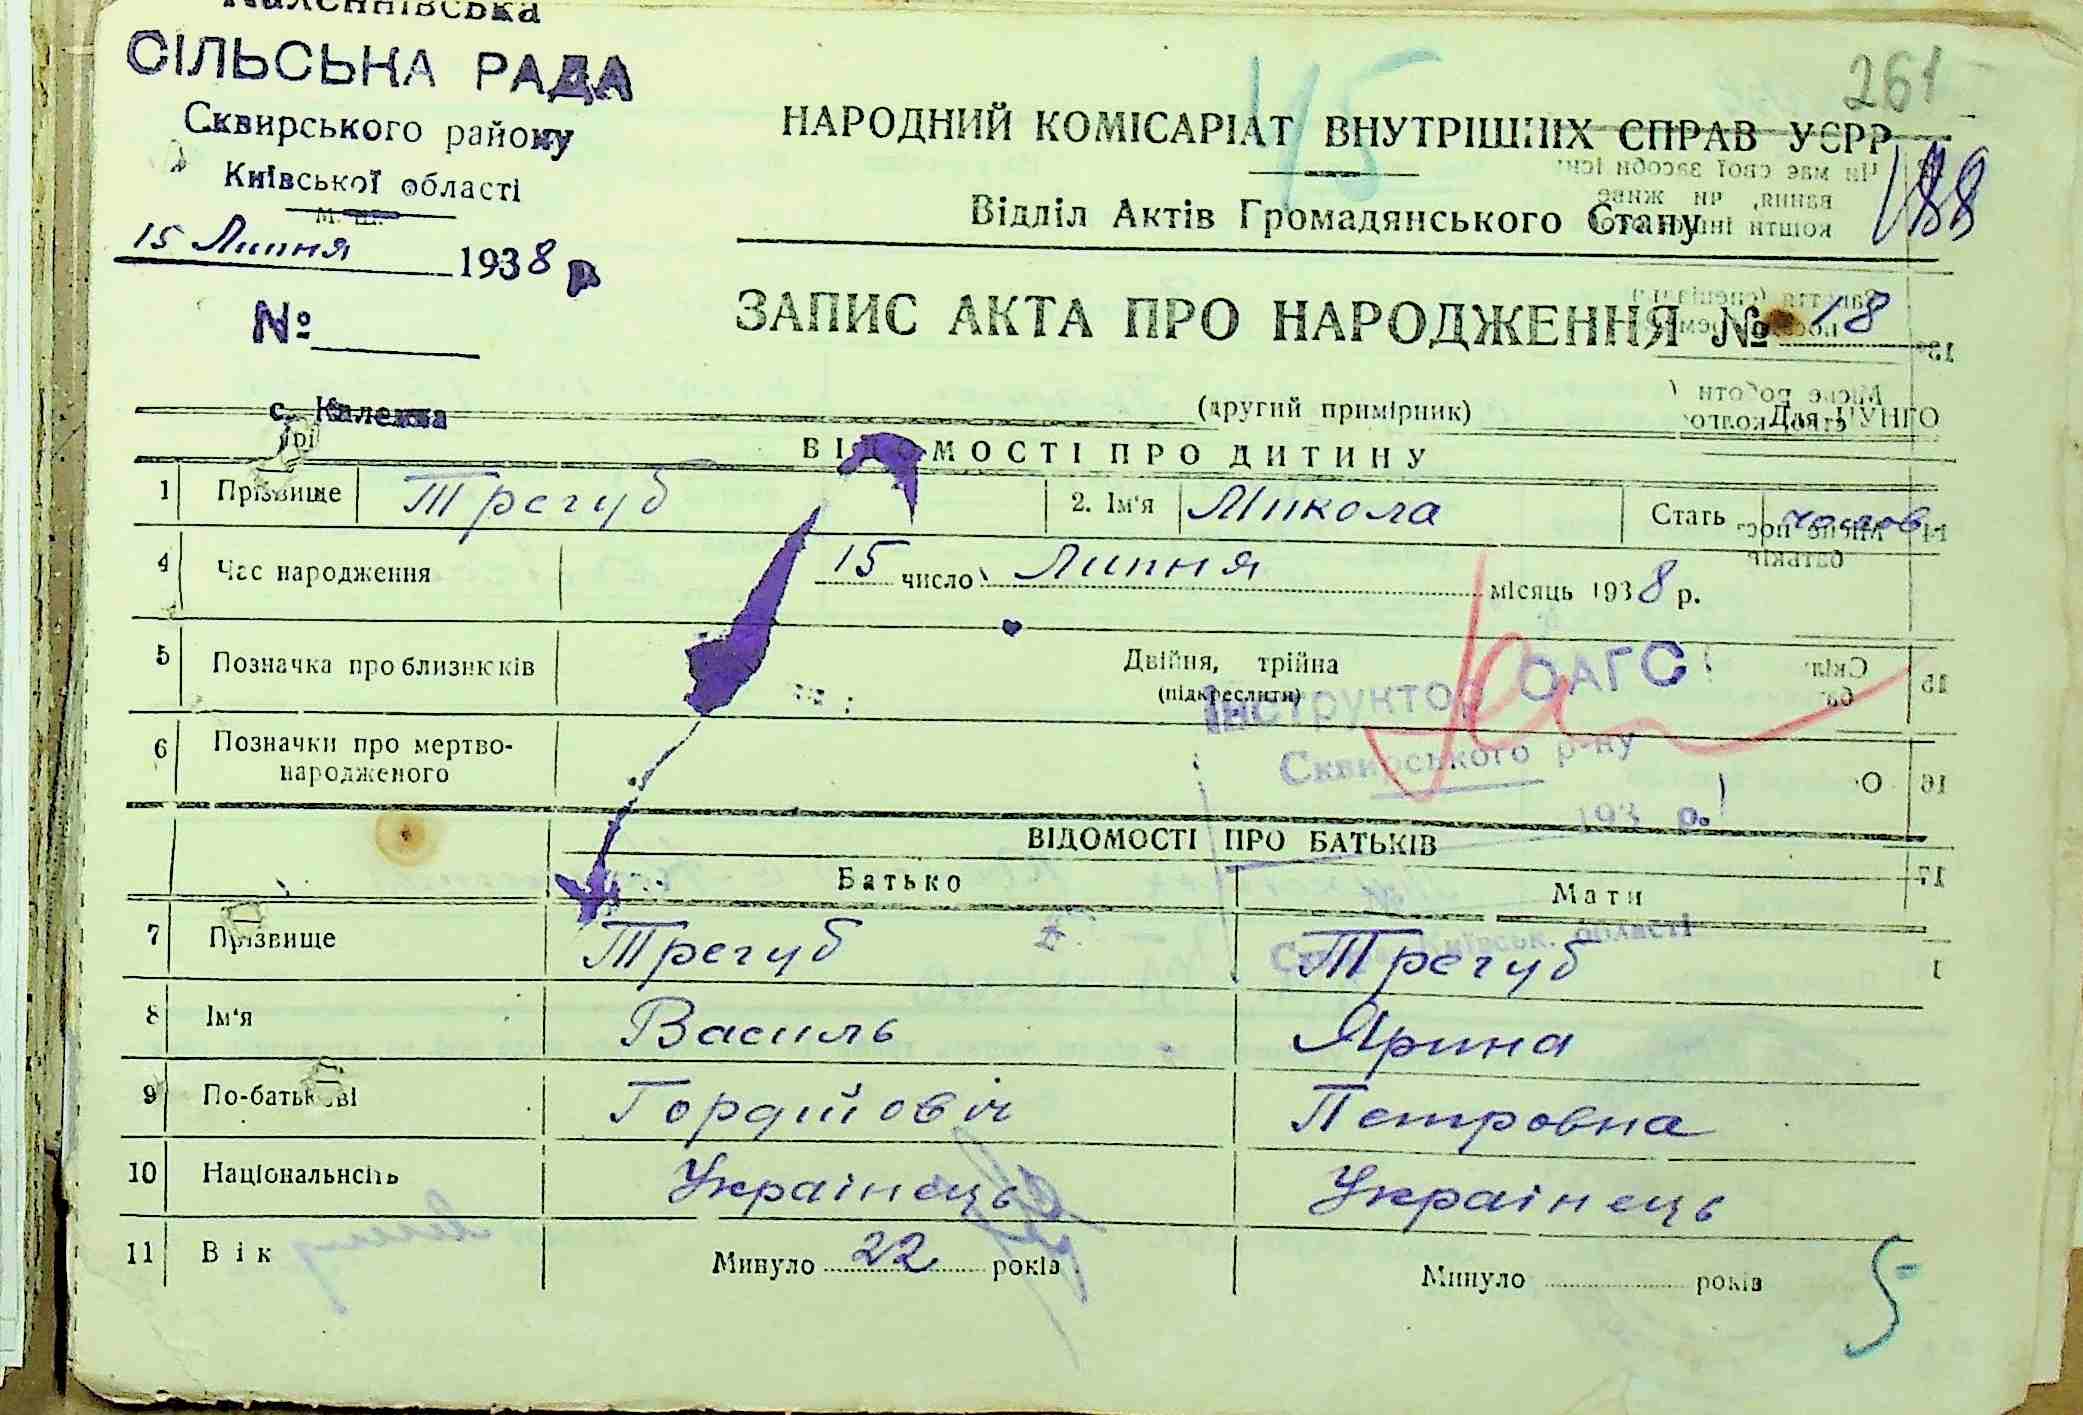 СІЛЬСЬКА РАДА
Сквирського району
Київської області
15 Липня 1938 р
№
261
45
188
НАРОДНИЙ КОМІСАРІАТ ВНУТРІШНІХ СПРАВ УСРР
Відділ Актів Громадянського Стану
ЗАПИС АКТА ПРО НАРОДЖЕННЯ № 18
с. Каленна
(другий примірник) Для ЦУНГО
ВІДОМОСТІ ПРО ДИТИНУ
1 Прізвище Трегуб 2. Ім'я Микола Стать чолов
4 Час народження 15 число Липня місяць 1938 р.
5 Позначка про близнюків Двійня, трійна
(підкреслити)
Інструктор ОАГС
Сквирського р-ну
193 р.
6 Позначки про мертво-
народженого
ВІДОМОСТІ ПРО БАТЬКІВ
Батько Мати
№
Київськ. області
7 Прізвище Трегуб Трегуб
8 Ім'я Василь Ярина
9 По-батькові Гордійовіч Петровна
10 Національність Українець Українець
11 Вік Минуло 22 років Минуло років
5